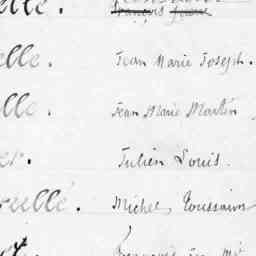 elle. françois jean
elle. Jean Marie Joseph.
lle. Jean Marie Martin
er. Julien Louis.
ruellé. Michel Toussaint